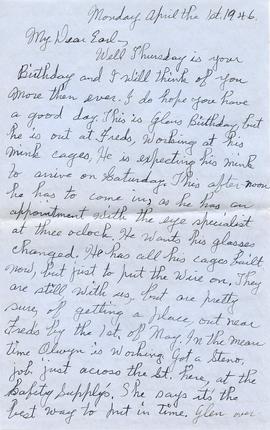 Monday April the 1st. 1946.
My Dear Earl—
Well Thursday is your
Birthday and I will think of you
more then ever. I do hope you have
a good day. This is Glens Birthday but
he is out at Freds, Working at his
mink cages, He is expecting his mink
to arrive on Saturday. This after noon
he has to come in, as he has an
appointment with the eye specialist
at three oclock. He wants his glasses
changed. He has all his cages built
now, but just to put the wire on. They
are still with us, but are pretty
sure, of getting a place, out near
Freds by the 1st. of May. In the mean
time Olwyn is working. Got a Steno,
job just across the St. here, at the
Safety Supply's. She says its the
best way to put in time. Glen over